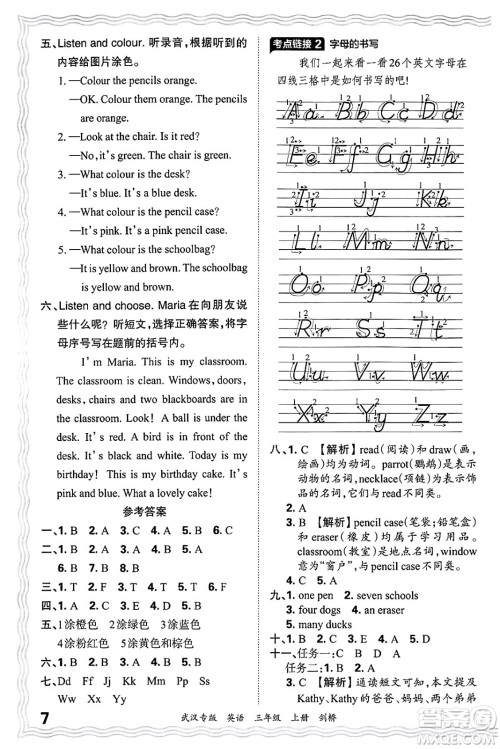 五、Listen and colour. 听录音,根据听到的
内容给图片涂色。
1. —Colour the pencils orange.
—OK. Colour them orange. The pencils
are orange.
2. —Look at the chair. Is it red?
—No, it's green. The chair is green.
3. —What colour is the desk?
—It's blue. The desk is blue.
4. —What colour is the pencil case?
—It's pink. It's a pink pencil case.
5. —What colour is the schoolbag?
—It is yellow and brown. The schoolbag
is yellow and brown.
六、Listen and choose. Maria 在向朋友说
些什么呢?听短文,选择正确答案,将字
母序号写在题前的括号内。
I'm Maria. This is my classroom.
The classroom is clean. Windows, doors,
desks, chairs and two blackboards are in my
classroom. Look! A ball is under the
desk. It's red. A bird is in front of the
desk. It's black and white. Today is my
birthday! This is my birthday cake. It's
pink. What a lovely cake!
参考答案
一、1. B 2. A 3. C 4. C 5. B
二、1. B 2. A 3. A 4. B 5. A
三、1. T 2. F 3. T 4. F 5. F
四、1. B 2. C 3. A 4. A 5. C
五、1涂橙色 2涂绿色 3涂蓝色
4涂粉红色 5涂黄色和棕色
六、1. B 2. A 3. C 4. A 5. B
七、Dd Ff Hh Kk Mm Pp Rr
Uu Ww Yy
考点链接2 字母的书写
我们一起来看一看26个英文字母在
四线三格中是如何书写的吧!
Aa Bb Cc Dd
Ee Ff Gg Hh
Ii Jj Kk
Ll Mm Nn
Oo Pp Qq
Rr Ss Tt
Uu Vv Ww
Xx Yy Zz
八、1. C 【解析】read(阅读)和draw(画,
绘画)均为动词。parrot(鹦鹉)是表示
动物的名词,necklace(项链)为表示物
品的名词。与其他两项不同类。
2. A
3. B 【解析】pencil case(笔袋;铅笔盒)
和eraser(橡皮)均属于学习用品。
classroom(教室)是地点名词,window
意为“窗户”,与pencil case不同类。
4. B 5. C
九、1. one pen 2. seven schools
3. four dogs 4. an eraser
5. many ducks
十、1. C 2. B 3. A 4. A 5. C
十一、任务一:1. D 2. C 3. A 4. B
任务二:1. B 【解析】通读短文可知,本文提及
Kathy、Kathy的爸爸、妈妈、两个弟弟
7 武汉专版 英语 三年级 上册 剑桥